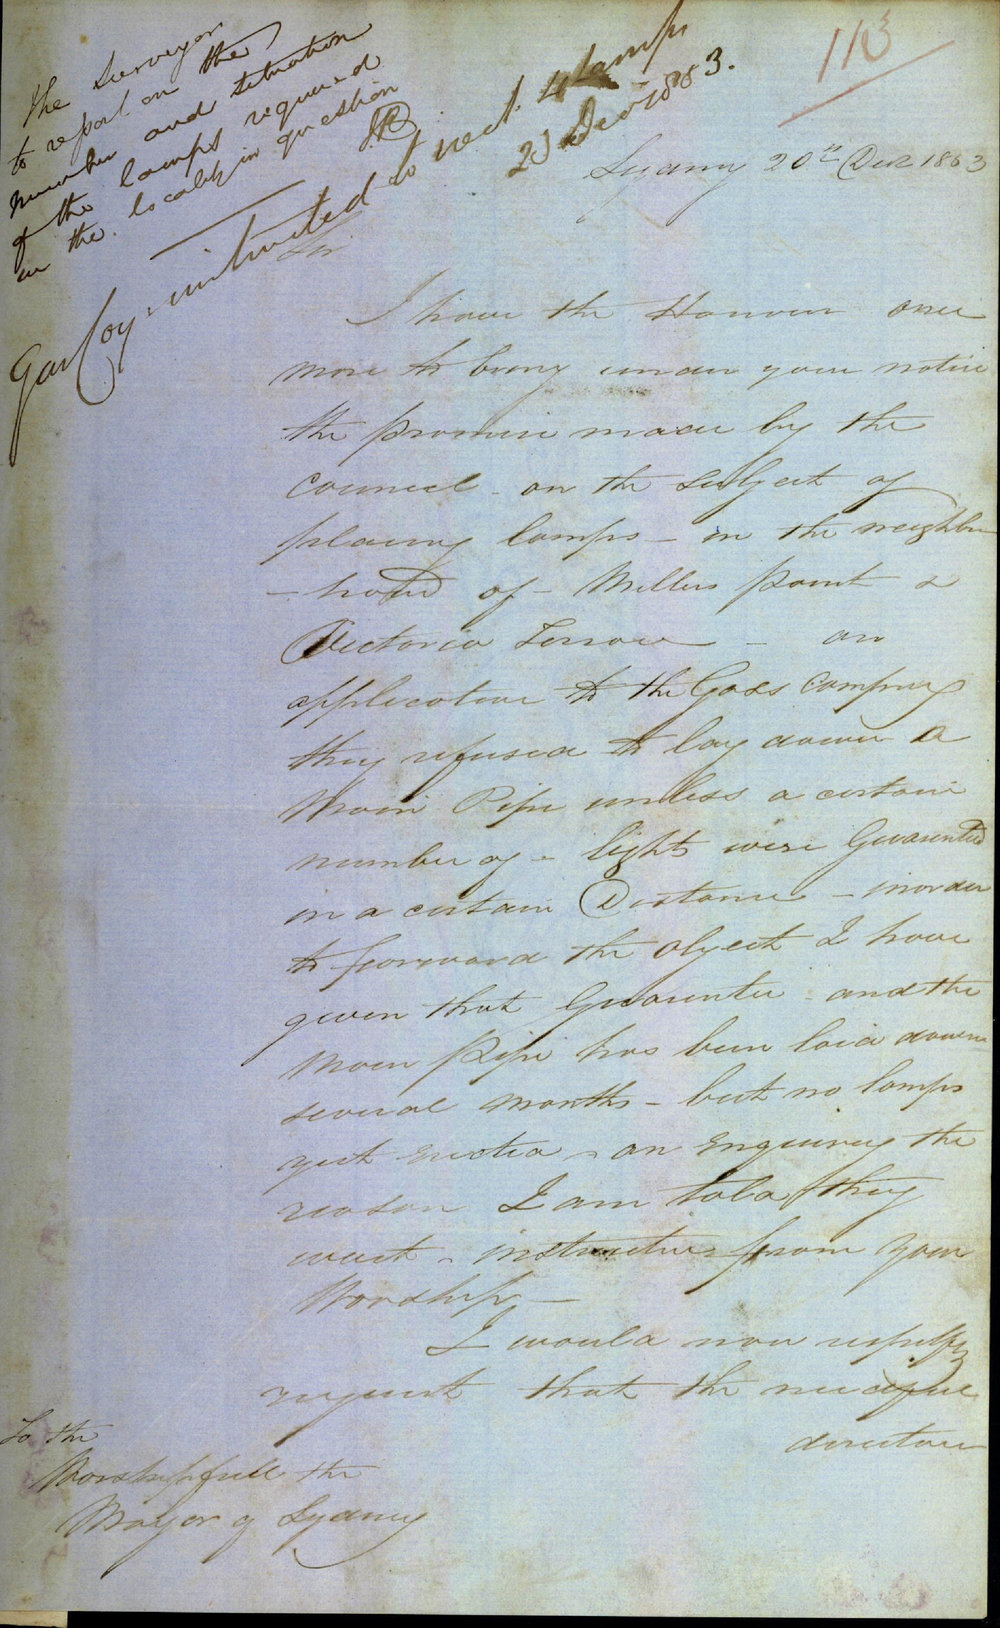 The Surveyor
to report on the
number and situation
of the lamps required
in the locality in question
Gas Coy instructed to erect 4 Lamps
23 Decr 1863.
113
Sydney 20th Decr 1863
Sir
I have the Honour once
more to bring under your notice
the promise made by the
Council - on the subject of
placing lamps - in the neighbor
- hood of - Millers Point &
Victoria Terrace - on
application to the Gass Company
they refused to lay down a
Main Pipe unless a certain
number of - lights were Guarenteed
in a certain Distance - in order
to forward the object I have
given that Guarentee - and the
Main Pipe has been laid down
several months - but no lamps
yet Erected - on Enquiring the
reason I am told they
want - instructions from your
Worship -
I would now
request that the
directions
To the
Worshipfull the
Mayor of Sydney